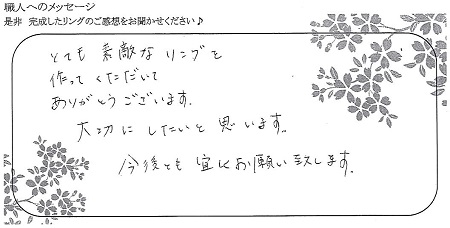 職人へのメッセージ
是非 完成したリングのご感想をお聞かせください♪
とても素敵なリングを
作ってくただいて
ありがとうございます。
大切にしたいと思います。
今後とも宜しくお願い致します。